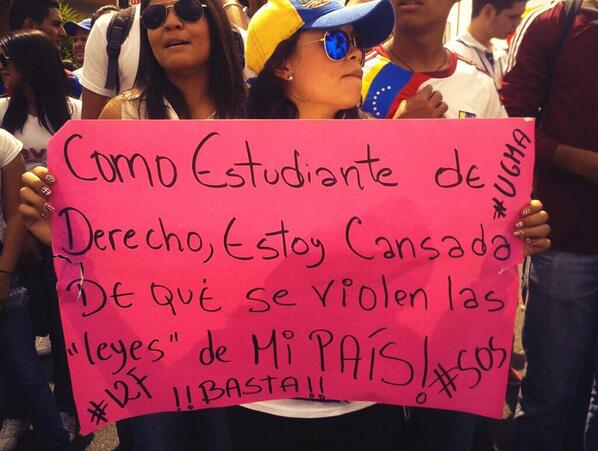 Como Estudiante de
Derecho, Estoy Cansada
DE QUÉ se violen las
"leyes" de Mi PAÍS!
!!BASTA!!
#12F
#SOS
#UGMA